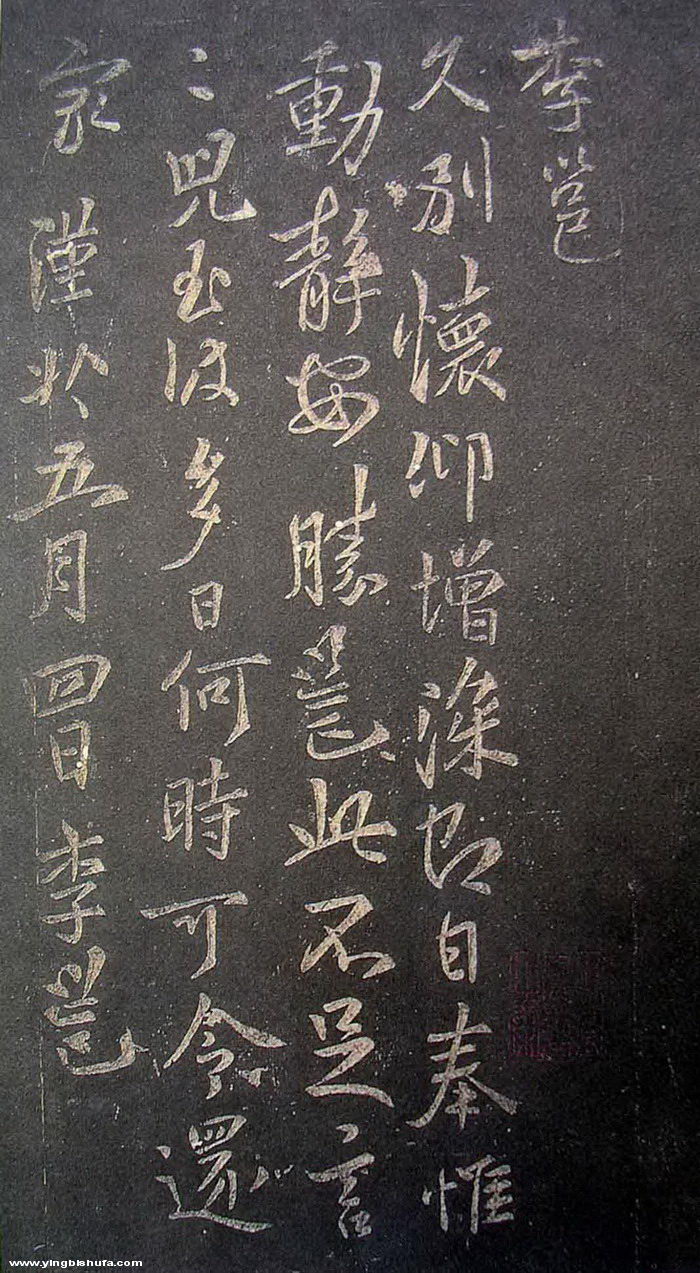 李邕
久别懷仰增深自奉惟
動靜安勝邕此不足言
〻兒至彼多日何時可令還
家謹於五月四日李邕
www.yingbishufa.com